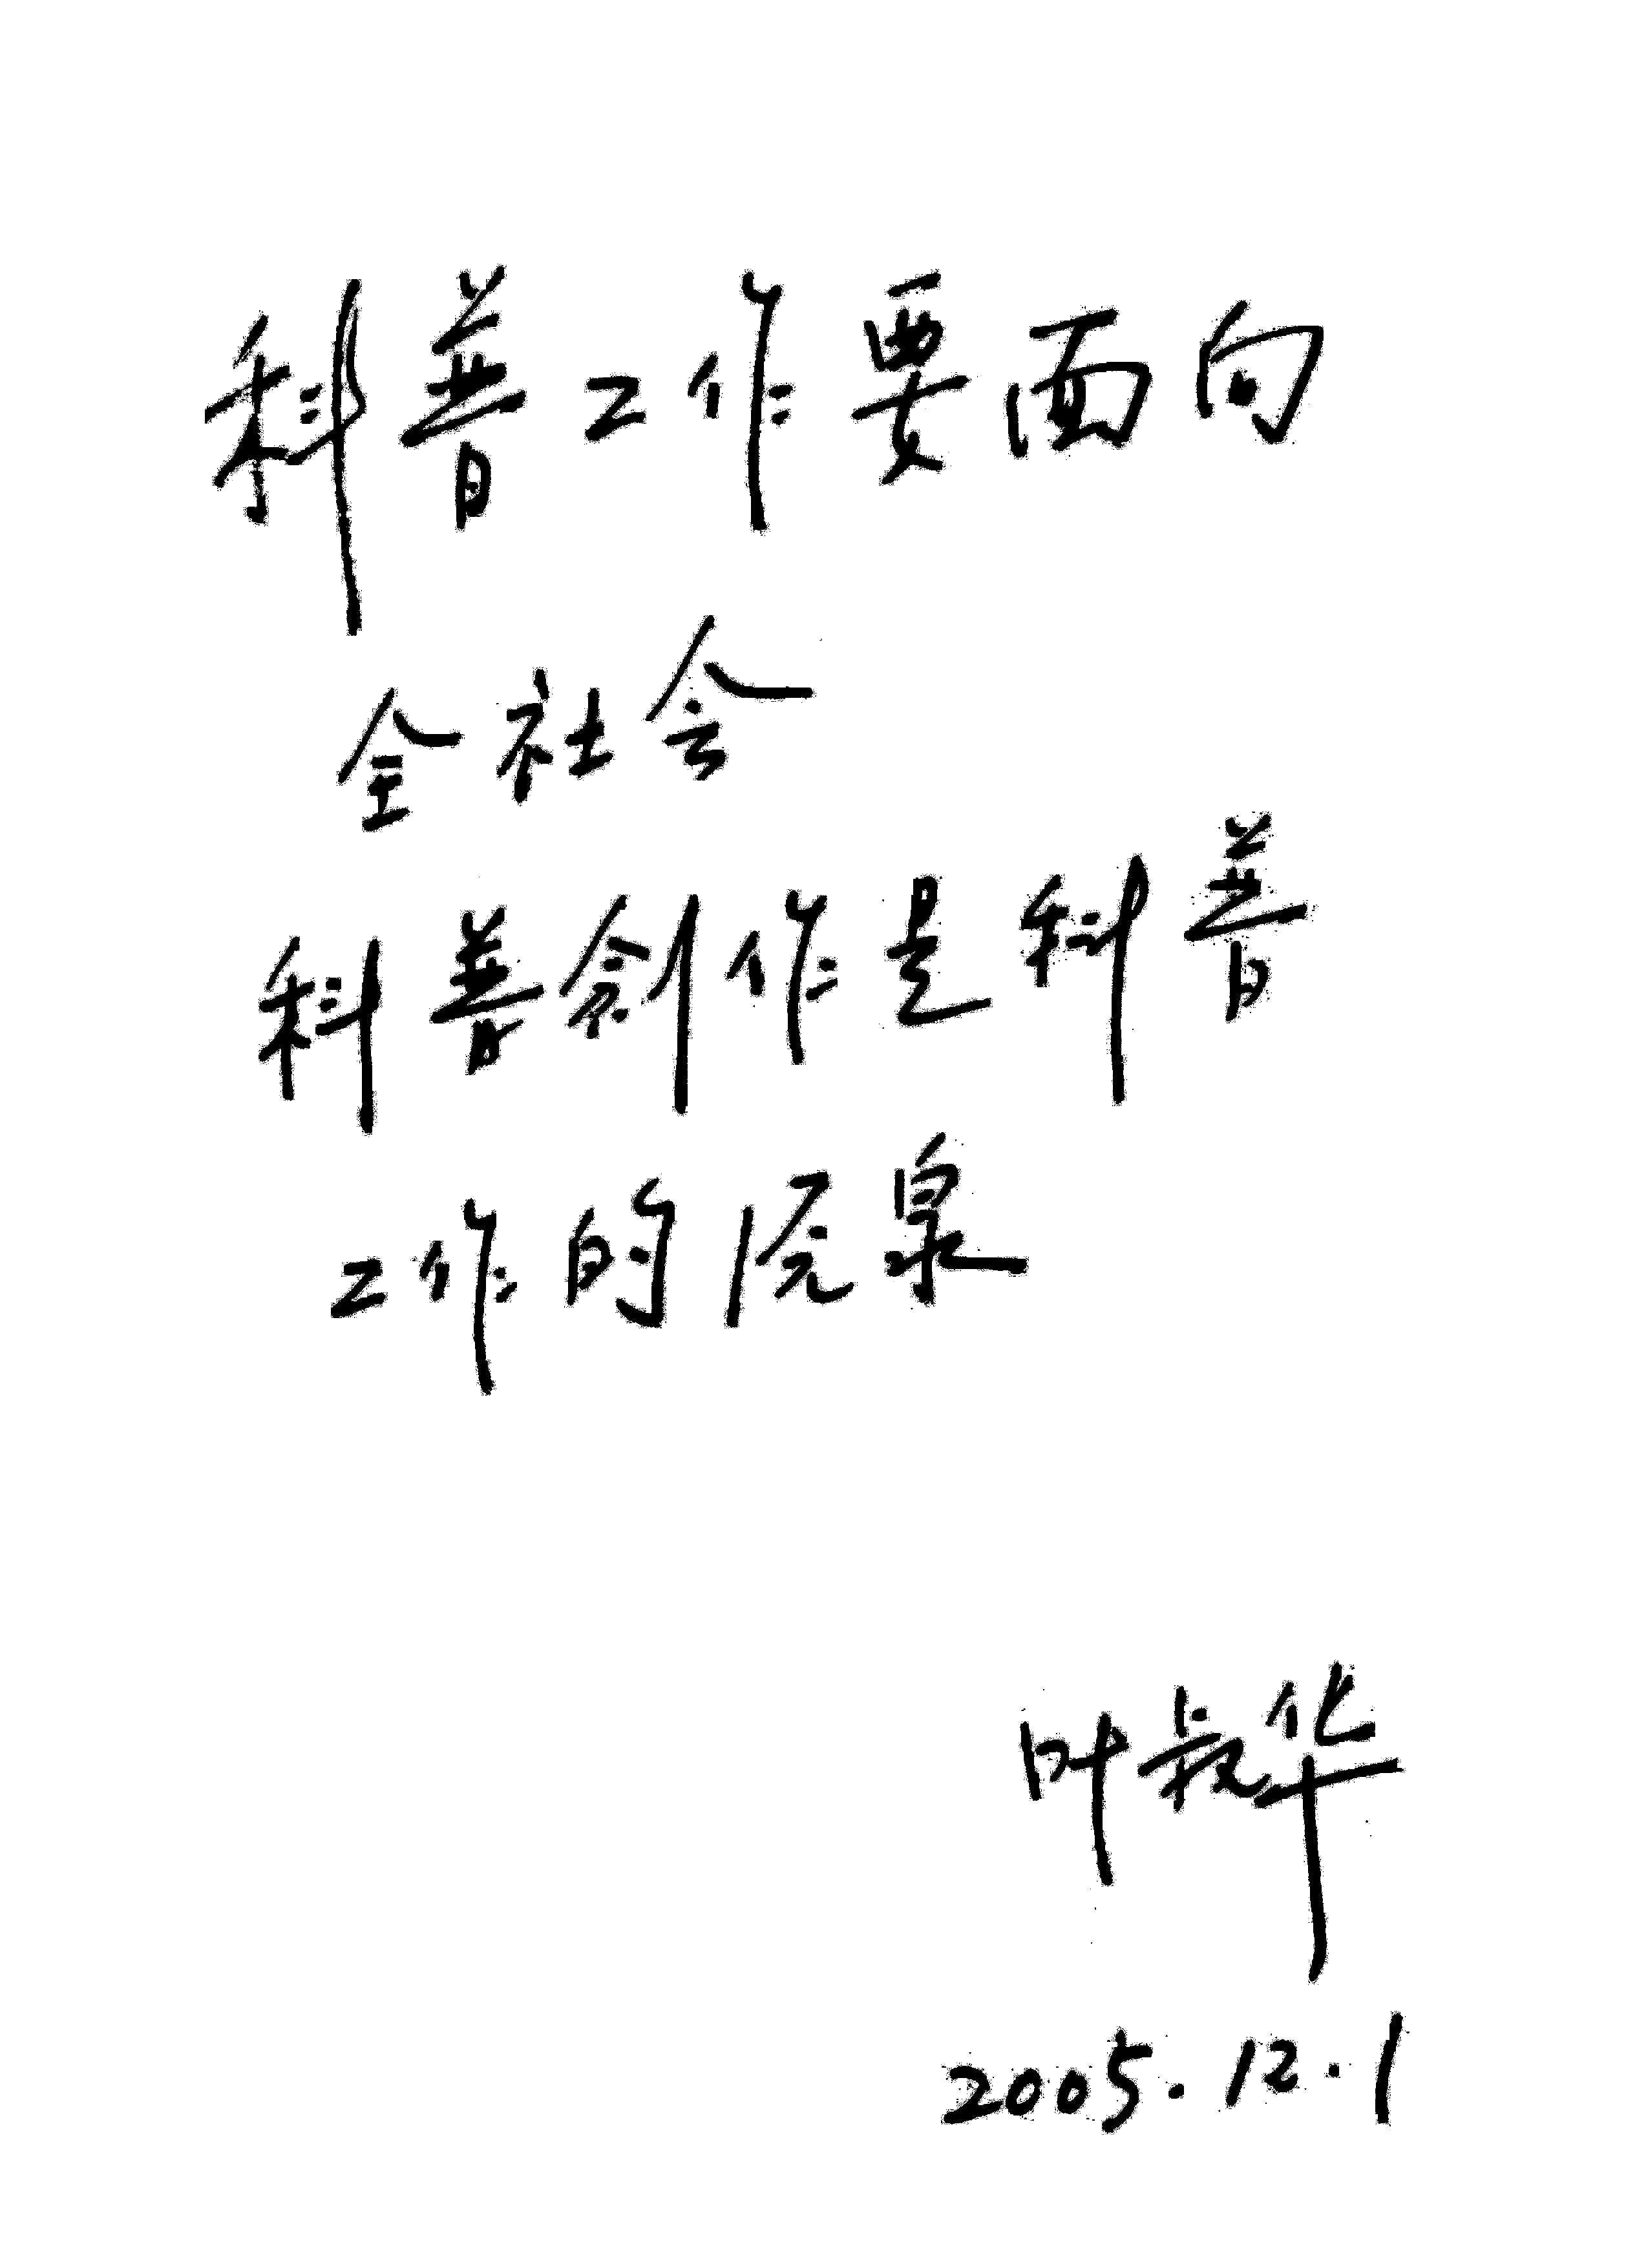 科普工作要面向
全社会
科普创作是科普
工作的源泉
叶叔华
2005.12.1